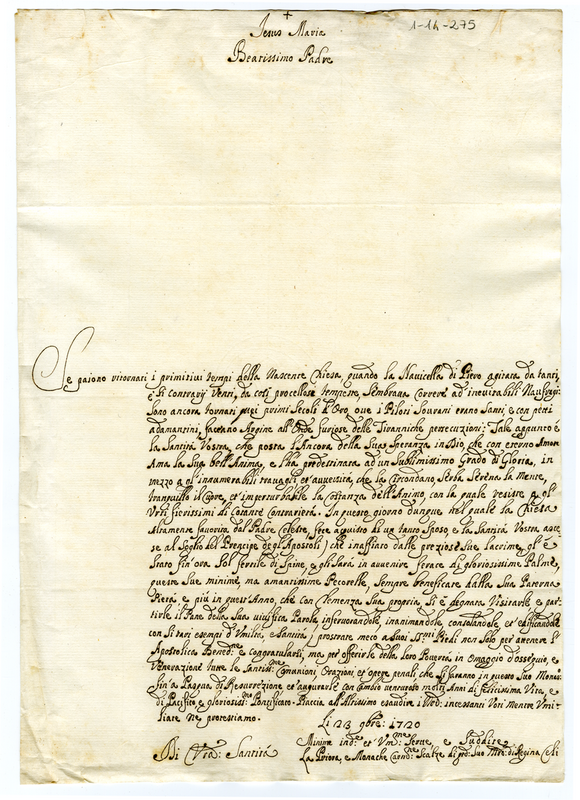 1-14-275
+
Jesus Maria
Beatissimo Padre
Se paiono ritornati i primitivi tempi della Nascente Chiesa, quando la Navicella di Piero agitata da tanti,
e sì contrarij Venti, da così procellose tempeste, sembrava correre ad inevitabili Naufragi:
Sono ancora tornati quei primi Secoli d'Oro, ove i Piloti Sovrani erano Santi, e con petti
adamantini, facevano Argine all'Onde furiose delle Tiranniche persecuzioni: Tale appunto è
la Santità Vostra, che posta l'Ancora della Sua Speranza in Dio, che con eterno Amore
Ama la Sua bell'Anima, e l'ha predestinata ad un Sublimissimo Grado di Gloria, in
mezzo a gl'innumerabili travagli, et avversità, che la Circondano, Serba Serena la Mente,
tranquillo il Cuore, et imperturbabile la Costanza dell'Animo, con la quale resiste a gl'
Urti fierissimi di Cotante Contrarietà. In questo giorno dunque nel quale la Chiesa
Altamente favorita dal Padre Celeste, fece acquisto di un tanto Sposo, e la Santità Vostra asce-
se al Soglio del Prencipe degl'Apostoli, che inaffiato dalle preziose Sue lacrime, gl'è
stato fin'ora Sol fertile di Spine, e gli Sarà in avvenire ferace di gloriosissime Palme,
queste Sue minime, ma amantissime Pecorelle, Sempre beneficate dalla Sua Paterna
Pietà, e più in quest'Anno, che con Clemenza Sua propria, Si è degnata Visitarle, e par-
tirle il Pane della Sua vivifica Parola, infervorandole, inanimandole, consolandole, et edificandole
con Sì rari esempi d'Umiltà, e Santità, prostrate meco a Suoi SS.mi Piedi, non Solo per ottenere l'
Apostolica Bened.ne e Congratularsi, ma per offerirle della Loro Povertà, in Omaggio d'ossequio, e
Venerazione tutte le Santiss.me Comunioni, Orazioni, et opere penali che si faranno in questo Suo Monas.o
fin'a Pasqua di Resurrezione, et augurarle con Cambio venturoso molti Anni di felicissima Vita, e
di Pacifico, e gloriosiss.mo Pontificato. Piaccia all'Altissimo esaudire i Nostri incessanti Voti, mentre Umi-
liate ne protestiamo.
Li 23 9bre: 1720
Di Vra: Santità
Minime ind.e et Um.me Serve, e Suddite
La Priora, e Monache Carm.ne Scalze di Suo Mro: di Regina Celi